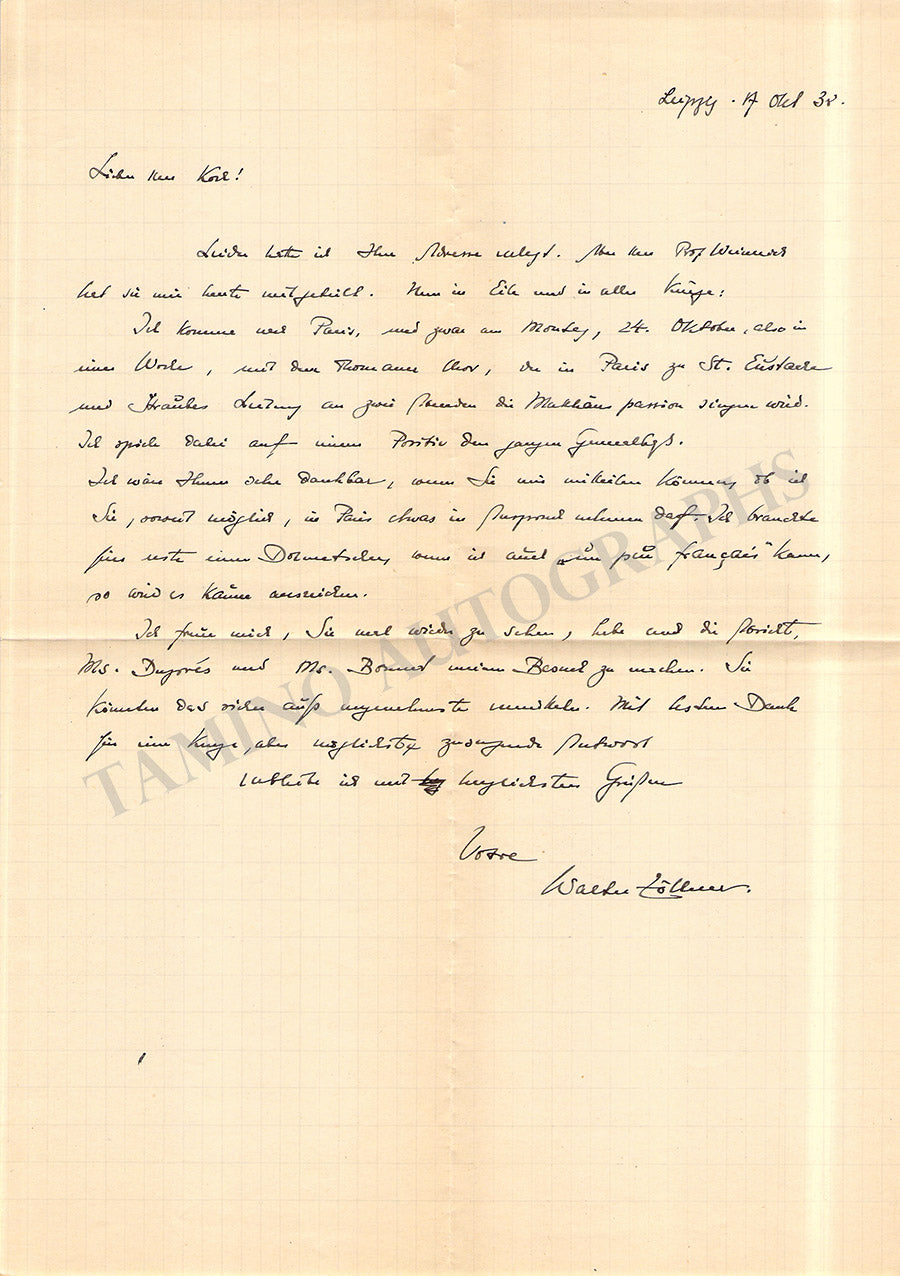 Leipzig . 17 Okt 38.
Lieber Herr Koch!
Leider hatte ich Ihre Adresse verlegt. Aber Herr Prof Weinreich
hat sie mir heute mitgeteilt. Nun in Eile und in aller Kürze:
Ich komme nach Paris, und zwar am Montag, 24. Oktober, also in
einer Woche, mit dem Thomaner Chor, der in Paris zu St. Eustache
unter Straubes Leitung an zwei Abenden die Matthäuspassion singen wird.
Ich spiele dabei auf einem Positiv den ganzen Generalbaß.
Ich wäre Ihnen sehr dankbar, wenn Sie mir mitteilen können, ob ich
Sie, soweit möglich, in Paris etwas in Anspruch nehmen darf. Ich brauchte
fürs erste einen Dolmetscher, wenn ich auch „un peu français" kann,
so wird es kaum ausreichen.
Ich freue mich, Sie mal wieder zu sehen, habe auch die Absicht,
Ms. Dupré und Ms. Bonnet meinen Besuch zu machen. Sie
könnten das sicher aufs angenehmste vermitteln. Mit bestem Dank
für eine kurze, aber möglichst zusagende Antwort
verbleibe ich mit herzlichsten Grüßen
Votre
Walter Zöllner.
TAMINO AUTOGRAPHS